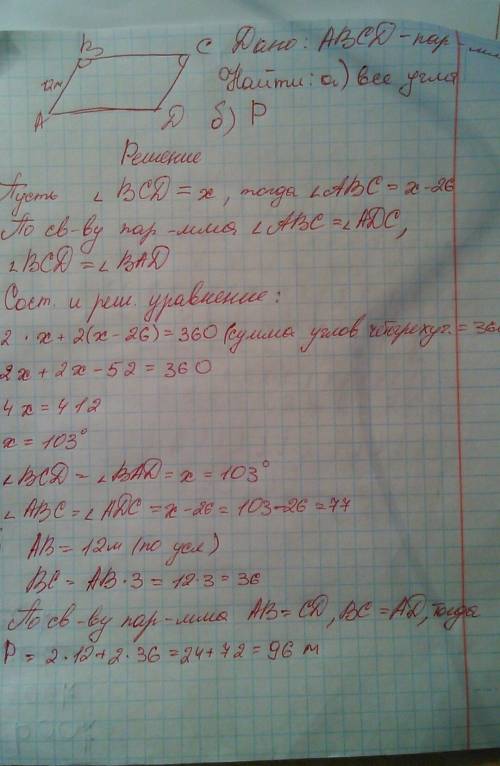 B C Дано: ABCD - пар-мм
12м Найти: а) все углы
A D б) P
Решение
Пусть ∠BCD = x, тогда ∠ABC = x-26
По св-ву пар-мма ∠ABC = ∠ADC,
∠BCD = ∠BAD
Сост. и реш. уравнение:
2 · x + 2(x - 26) = 360 (сумма углов четырехуг. = 360
2x + 2x - 52 = 360
4x = 412
x = 103°
∠BCD = ∠BAD = x = 103°
∠ABC = ∠ADC = x - 26 = 103 - 26 = 77
AB = 12м (по усл)
BC = AB · 3 = 12 · 3 = 36
По св-ву пар-мма AB = CD, BC = AD, тогда
P = 2 · 12 + 2 · 36 = 24 + 72 = 96 м